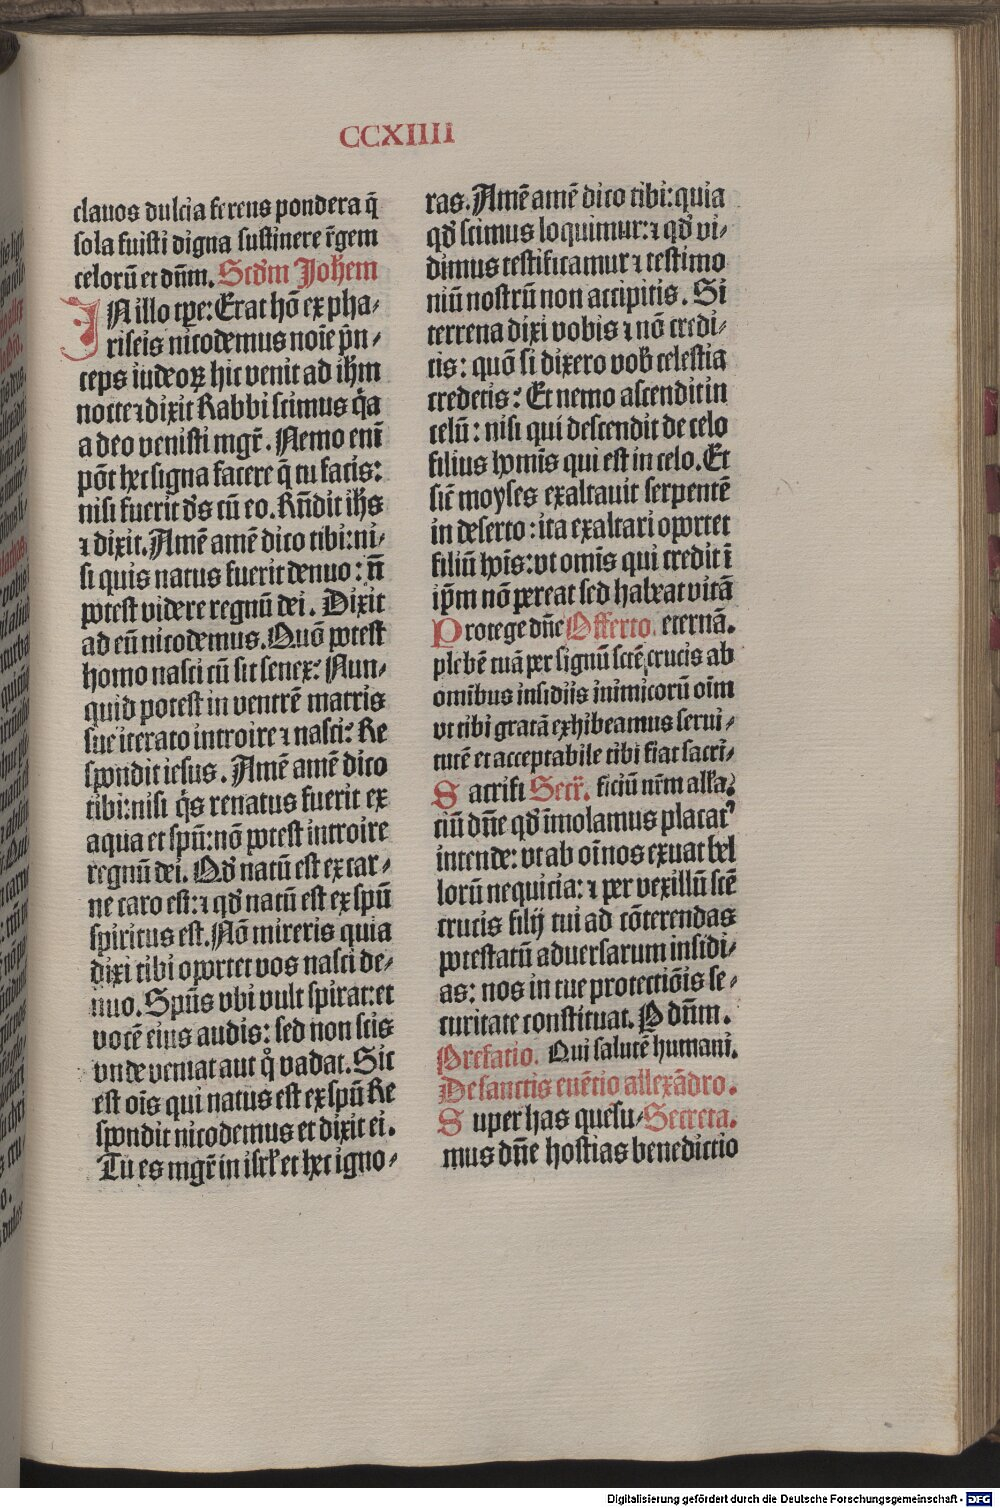 CCXIIII
clauos dulcia ferens pondera q̄
sola fuisti digna sustinere r̄gem
celorū et dn̄m. Scd̄m Joh̄em
IN illo tp̄e: Erat hō ex pha⸗
riseis nicodemus noīe p̄n⸗
ceps iudeoꝝ hic venit ad ih̄m
nocte ⁊ dixit Rabbi scimus q̄a
a deo venisti mgr̄. Nemo enī
pōt hec signa facere q̄ tu facis:
nisi fuerit d̄s cū eo. Rn̄dit ih̄s
⁊ dixit. Amē amē dico tibi: ni⸗
si quis natus fuerit denuo: n̄
potest videre regnū dei. Dixit
ad eū nicodemus. Quō potest
homo nasci cū sit senex: Nun⸗
quid potest in ventrē matris
sue iterato introire ⁊ nasci: Re
spondit iesus. Amē amē dico
tibi: nisi q̄s renatus fuerit ex
aqua et spū: nō potest introire
regnū dei. Qd̄ natū est ex car⸗
ne caro est: ⁊ qd̄ natū est ex spū
spiritus est. Nō mireris quia
dixi tibi oportet vos nasci de⸗
nuo. Spūs vbi vult spirat: et
vocē eius audis: sed non scis
vnde veniat aut q̊ vadat. Sic
est oīs qui natus est ex spū Re
spondit nicodemus et dixit ei.
Tu es mgr̄ in isrl̄ et hec igno⸗
ras. Amē amē dico tibi: quia
qd̄ scimus loquimur: ⁊ qd̄ vi⸗
dimus testificamur ⁊ testimo
niū nostrū non accipitis. Si
terrena dixi vobis ⁊ nō credi⸗
tis: quō si dixero vob̄ celestia
credetis: Et nemo ascendit in
celū: nisi qui descendit de celo
filius homīs qui est in celo. Et
sic̄ moyses exaltauit serpentē
in deserto: ita exaltari oportet
filiū hoīs: vt omīs qui credit ī
ip̄m nō pereat sed habeat vitā
Protege dn̄e Offerto. eternā.
plebē tuā per signū scē crucis ab
omībus insidiis inimicorū oīm
vt tibi gratā exhibeamus serui⸗
tutē et acceptabile tibi fiat sacri⸗
Sacrifi Secr̄. ficiū nr̄m alľa.
ciū dn̄e qd̄ īmolamus placat᾽
intende: vt ab oī nos exuat bel
lorū nequicia: ⁊ per vexillū scē
crucis filij tui ad cōterendas
potestatū aduersarum insidi⸗
as: nos in tue protectiōis se⸗
curitate constituat. P dn̄m.
Prefatio. Qui salutē humani.
De sanctis euētio allexādro.
Super has quesu⸗ Secreta.
mus dn̄e hostias benedictio
Digitalisierung gefördert durch die Deutsche Forschungsgemeinschaft - DFG